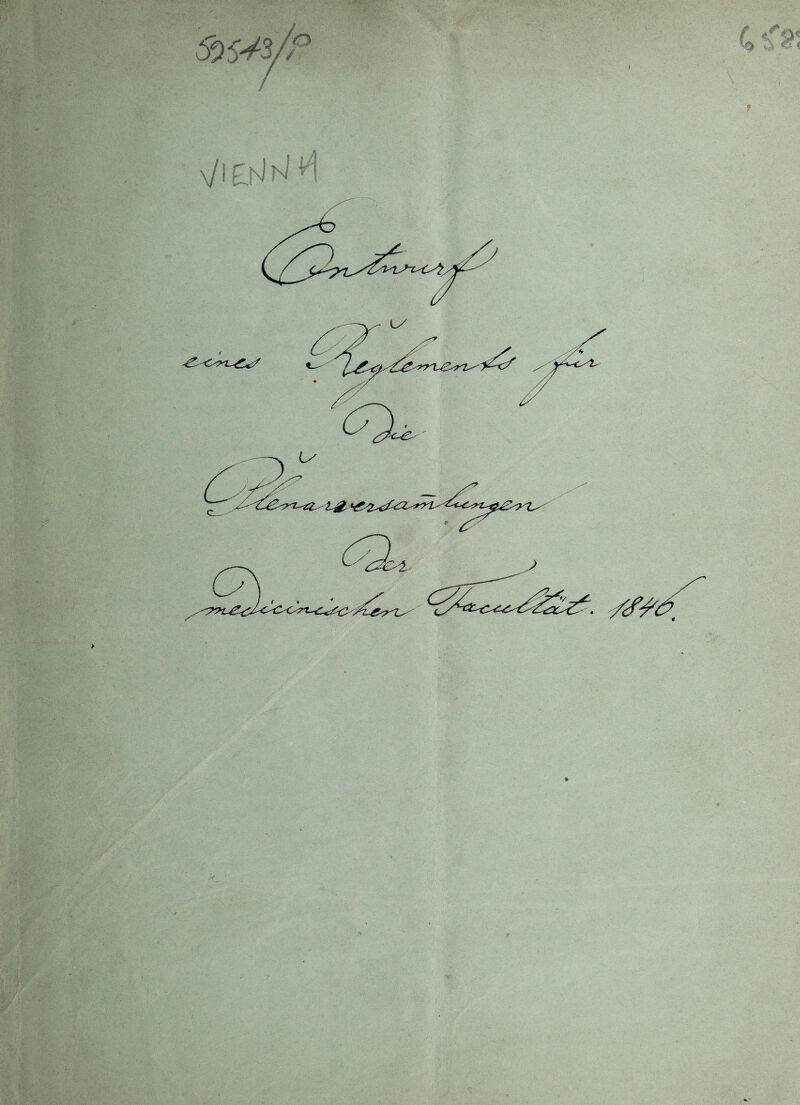 52543/P
VIENNA
Entwurf
eines Reglements für
Die
Plenarversam̅lungen
Der
medicinischen Facultät. 1846.